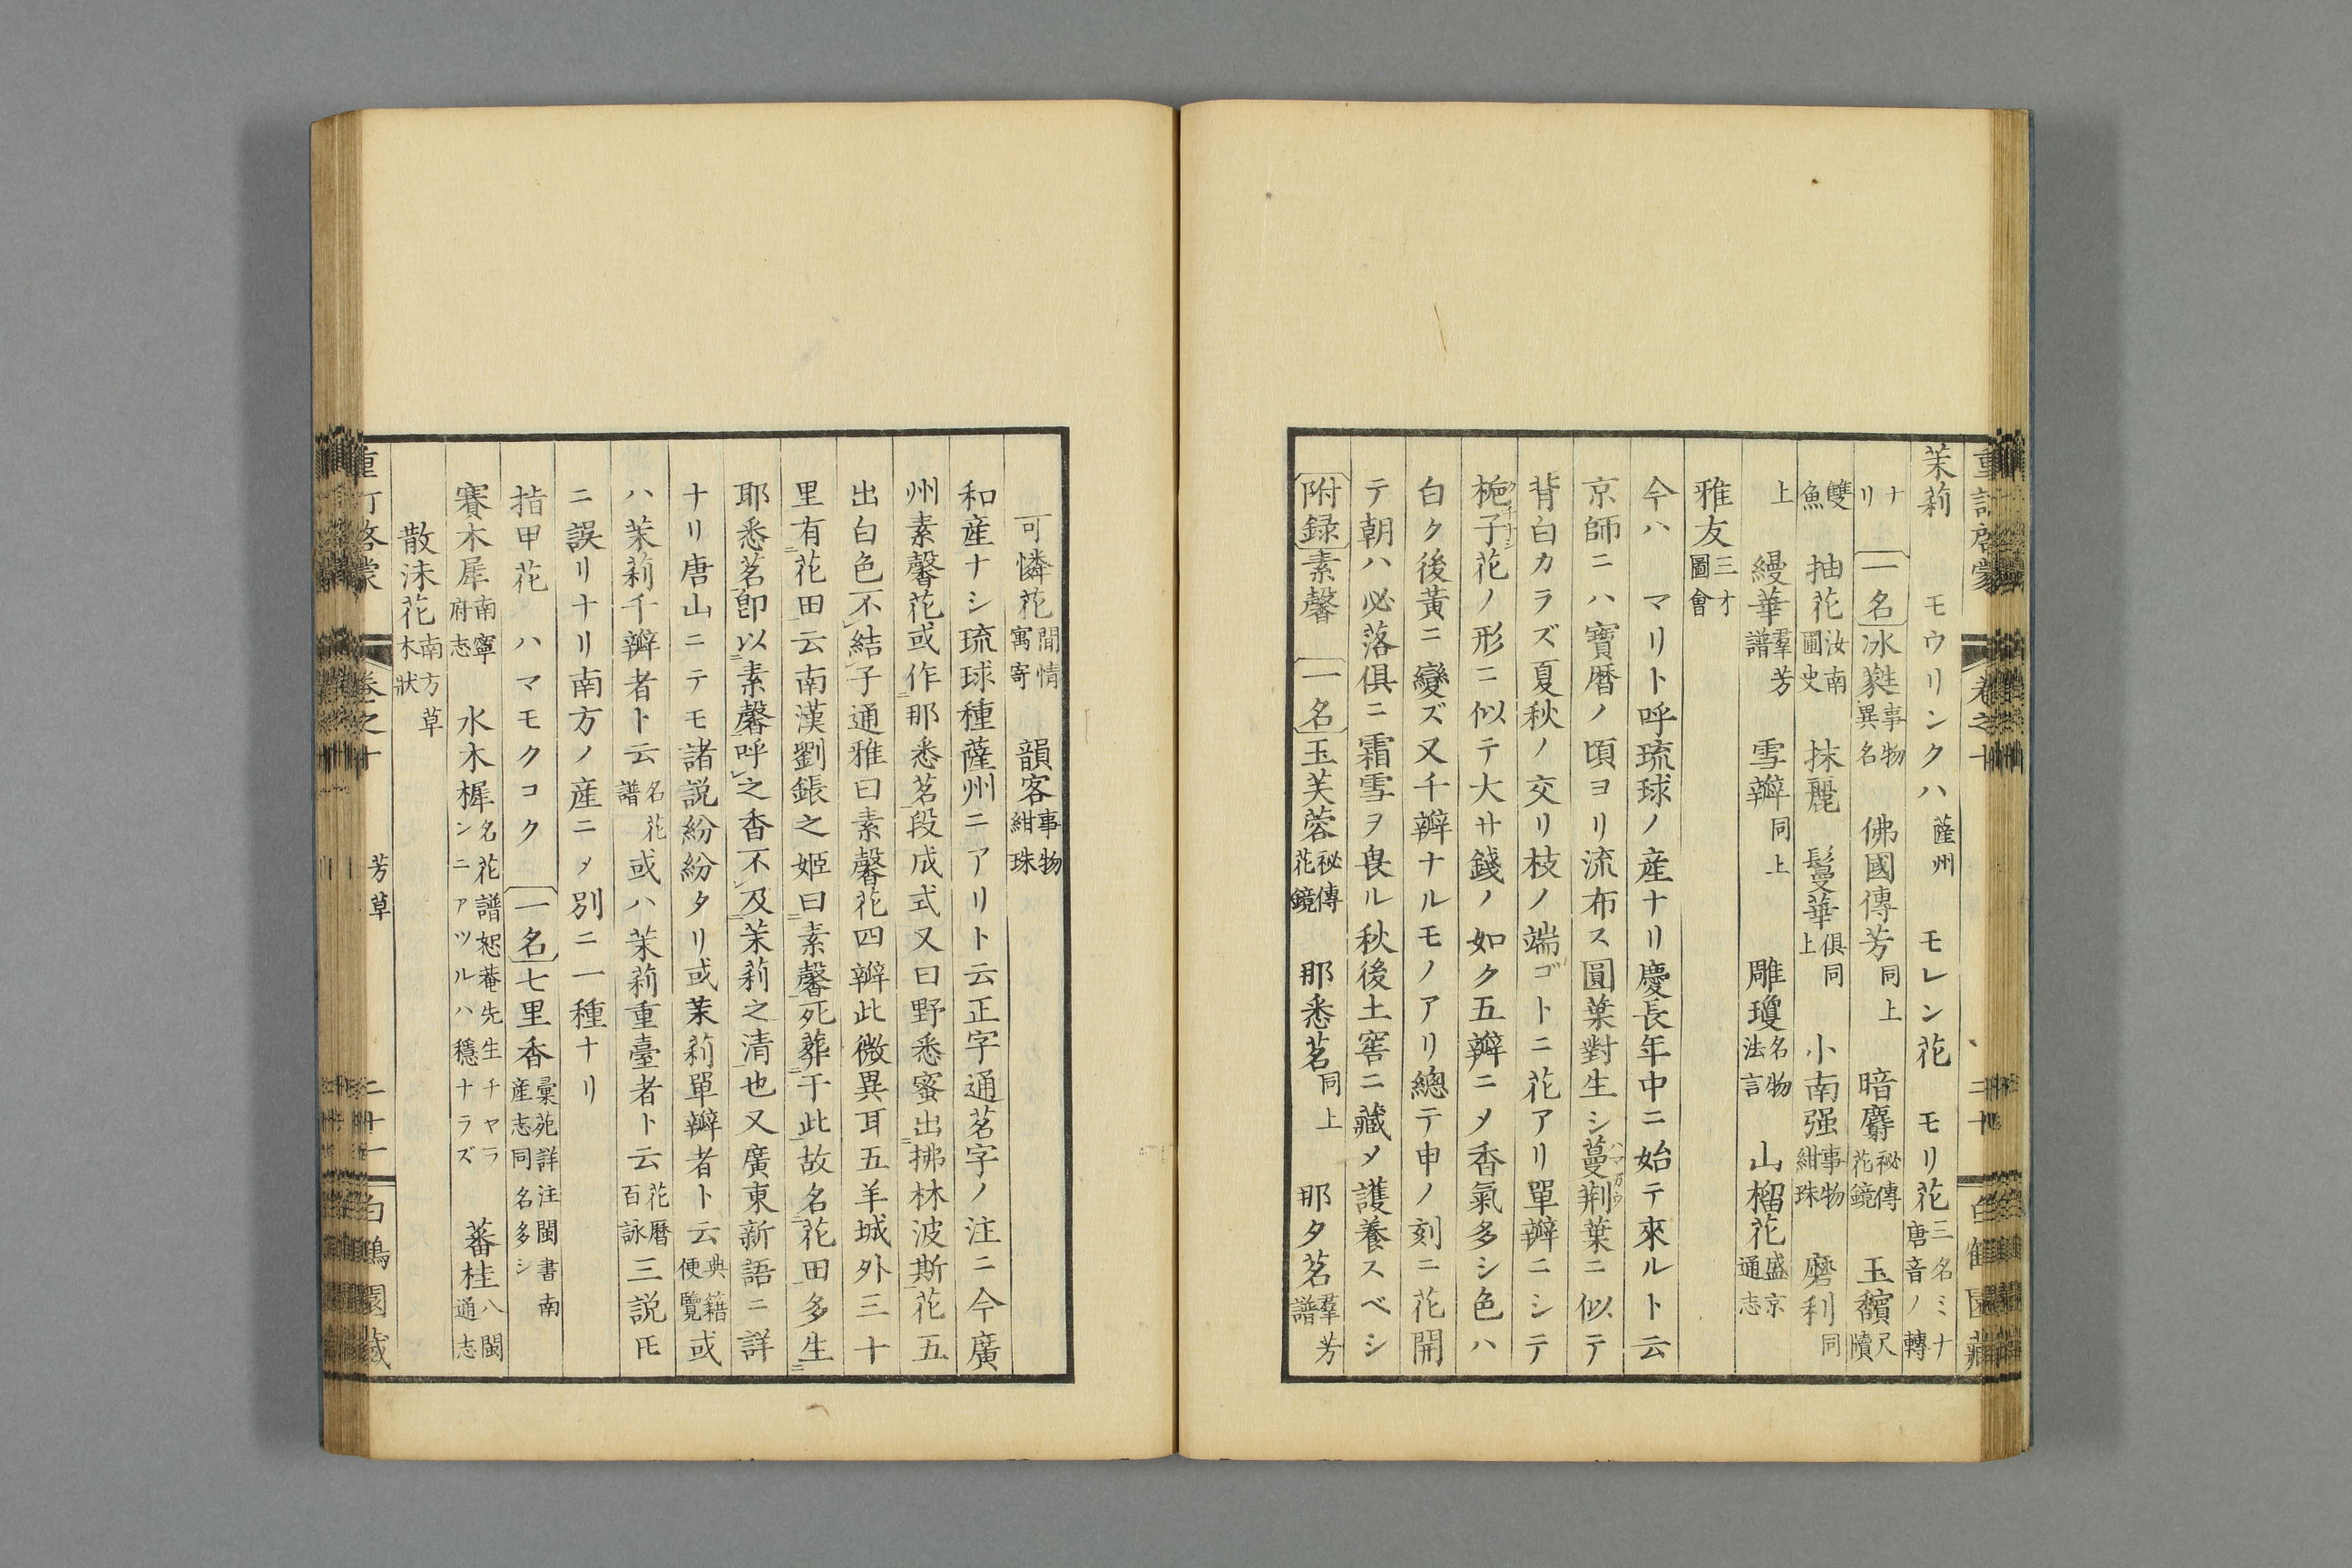 茉莉　モウリンクハ 薩州　モレン花　モリ花 三名ミナ唐音ノ轉
ナリ　一名 氷蕤 事物異名　佛國傳芳 同上　暗麝 秘傳花鏡　玉䕫 尺牘
雙魚　抽花 汝南圃史　抹麗　鬘華 俱同上　小南强 事物紺珠　磨利 同
上　縵華 羣芳譜　雪瓣 同上　雕瓊 名物法言　山榴花 盛京通志
雅友 三才圖會
今ハ　マリト呼琉球ノ産ナリ慶長年中ニ始テ來ルト云
京師ニハ寶暦ノ頃ヨリ流布ス圓葉對生シ蔓荆葉ニ似テ
背白カラズ夏秋ノ交リ枝ノ端ゴトニ花アリ單瓣ニシテ
梔子花ノ形ニ似テ大サ錢ノ如ク五瓣ニメ香氣多シ色ハ
白ク後黄ニ變ズ又千瓣ナルモノアリ總テ申ノ刻ニ花開
テ朝ハ必落俱ニ霜雪ヲ畏ル秋後土窖ニ藏メ護養スベシ
附録 素馨　一名 玉芙蓉 秘傳花鏡　那悉茗 同上　那夕茗 羣芳譜
重訂啓蒙　卷之十　二十　白鶴園藏
可憐花 閒情寓寄　韻客 事物紺珠
和産ナシ琉球種薩州ニアリト云正字通茗字ノ注ニ今廣
州素馨花或作那悉茗段成式又曰野悉蜜出拂林波斯花五
出白色不結子通雅曰素馨花四瓣此微異耳五羊城外三十
里有花田云南漢劉鋹之姬曰素馨死葬于此故名花田多生
耶悉茗卽以素馨呼之香不及茉莉之清也又廣東新語ニ詳
ナリ唐山ニテモ諸説紛紛タリ或茉莉單瓣者ト云 典籍便覽 或
ハ茉莉千瓣者ト云 名花譜 或ハ茉莉重臺者ト云 花暦百詠 三説氏
ニ誤リナリ南方ノ産ニメ別ニ一種ナリ
指甲花　ハマモクコク　一名 七里香 彙苑詳注閩書南産志同名多シ
賽木犀 南寧府志　水木樨 名花譜恕菴先生チヤランニアツルハ穩ナラズ　蕃桂 八閩通志
散沬花 南方草木狀
重訂啓蒙　卷之十　芳草　二十一　白鶴園藏